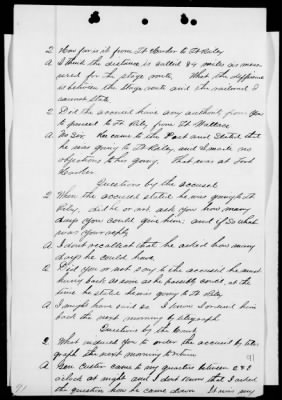 Q How far is it from Ft Harker to Ft Riley
A I think the distance is called 84 miles as mea-
sured for the stage route. What the difference
is between the stage route and the railroad I
cannot state.
Q Did the accused have any authority from you
to proceed to Ft Riley from Ft Wallace
A No Sir. He came to the Post and stated that
he was going to Ft Riley, and I made no
objections to his going. That was at Fort
Harker
Questions by the accused
Q When the accused stated he was going to Ft
Riley, did he or not ask you how many
days you could give him; and if so what
was your reply
A I don't recollect that he asked how many
days he could have
Q Did you or not say to the accused he must
hurry back as soon as he possibly could, at the
time he stated he was going to Ft Riley
A I might have said so I know I ordered him
back the next morning by telegraph
Questions by the Court
Q What induced you to order the accused by tele-
graph the next morning to return
A Gen Custer came to my quarters between 2 & 3
o'clock at night and I don't know that I asked
the question how he came down It was my
91
91